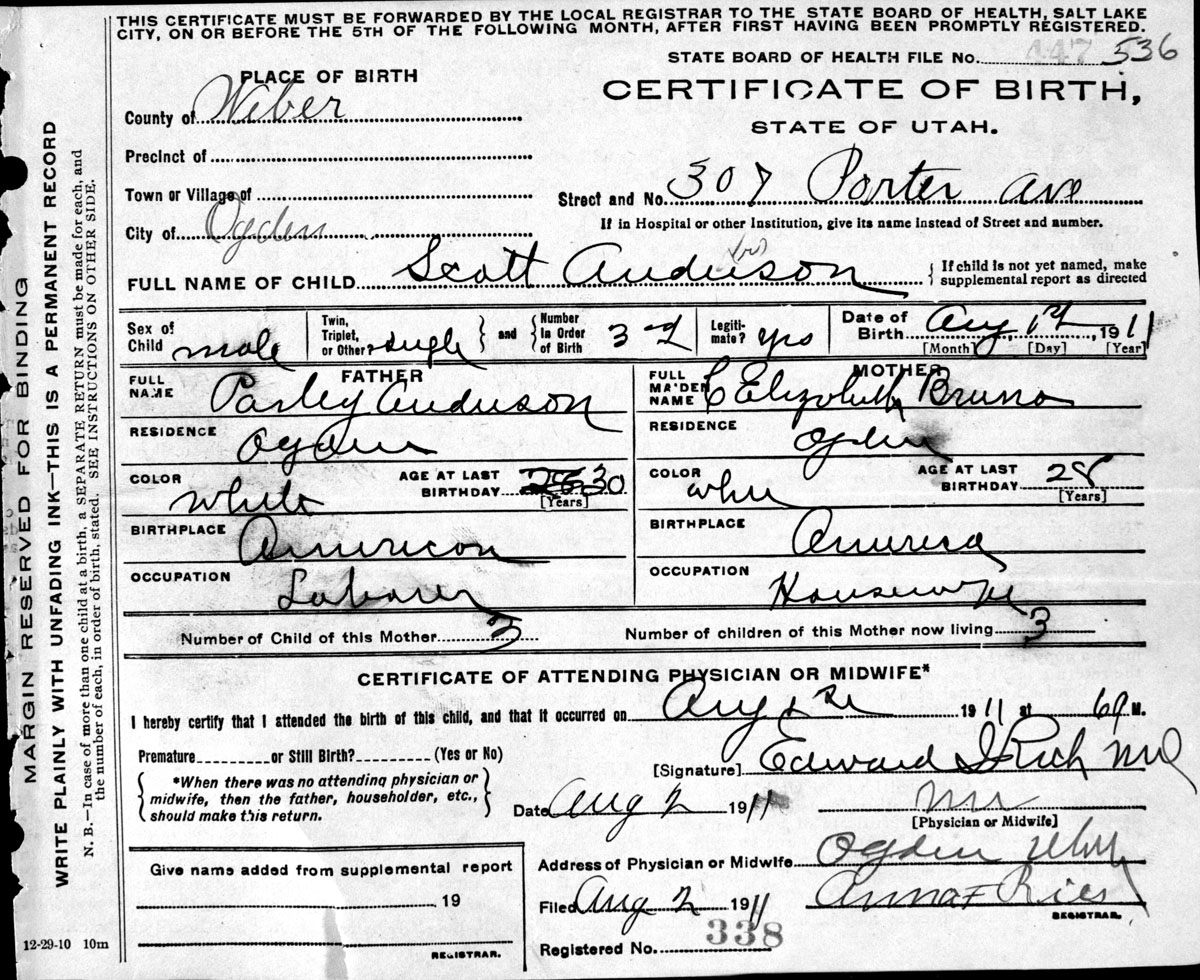 THIS CERTIFICATE MUST BE FORWARDED BY THE LOCAL REGISTRAR TO THE STATE BOARD OF HEALTH, SALT LAKE
CITY, ON OR BEFORE THE 5TH OF THE FOLLOWING MONTH, AFTER FIRST HAVING BEEN PROMPTLY REGISTERED.
STATE BOARD OF HEALTH FILE No. 447 536
PLACE OF BIRTH
CERTIFICATE OF BIRTH,
STATE OF UTAH.
County of Weber
Precinct of
Town or Village of
Street and No. 307 Porter Ave
City of Ogden
If in Hospital or other Institution, give its name instead of Street and number.
FULL NAME OF CHILD Scott Anderson
{ If child is not yet named, make
supplemental report as directed
Sex of
Child male
Twin,
Triplet,
or Other single } and { Number
In Order
of Birth 3rd
Legiti-
mate? yes
Date of
Birth Aug 1st, 1911
[Month] [Day] [Year]
FATHER
FULL
NAME Parley Anderson
RESIDENCE
Ogden
COLOR
White
AGE AT LAST
BIRTHDAY 30
[Years]
BIRTHPLACE
American
OCCUPATION
Laborer
MOTHER
FULL
MAIDEN
NAME C Elizabeth
RESIDENCE
Ogden
COLOR
White
AGE AT LAST
BIRTHDAY 28
[Years]
BIRTHPLACE
America
OCCUPATION
Housewife
Number of Child of this Mother 3
Number of children of this Mother now living 3
CERTIFICATE OF ATTENDING PHYSICIAN OR MIDWIFE*
I hereby certify that I attended the birth of this child, and that it occurred on Aug 1st 1911 at M.
Premature or Still Birth? (Yes or No)
{ *When there was no attending physician or
midwife, then the father, householder, etc.,
should make this return. }
[Signature] Edward I Rich MD
Date Aug 2 1911
[Physician or Midwife]
Address of Physician or Midwife Ogden Utah
Filed Aug 2 1911 Anna F
REGISTRAR.
Registered No. 338
Give name added from supplemental report
19
REGISTRAR.
12-29-10 10m
MARGIN RESERVED FOR BINDING
WRITE PLAINLY WITH UNFADING INK—THIS IS A PERMANENT RECORD
N. B.—In case of more than one child at a birth, a SEPARATE RETURN must be made for each, and
the number of each, in order of birth, stated. SEE INSTRUCTIONS ON OTHER SIDE.